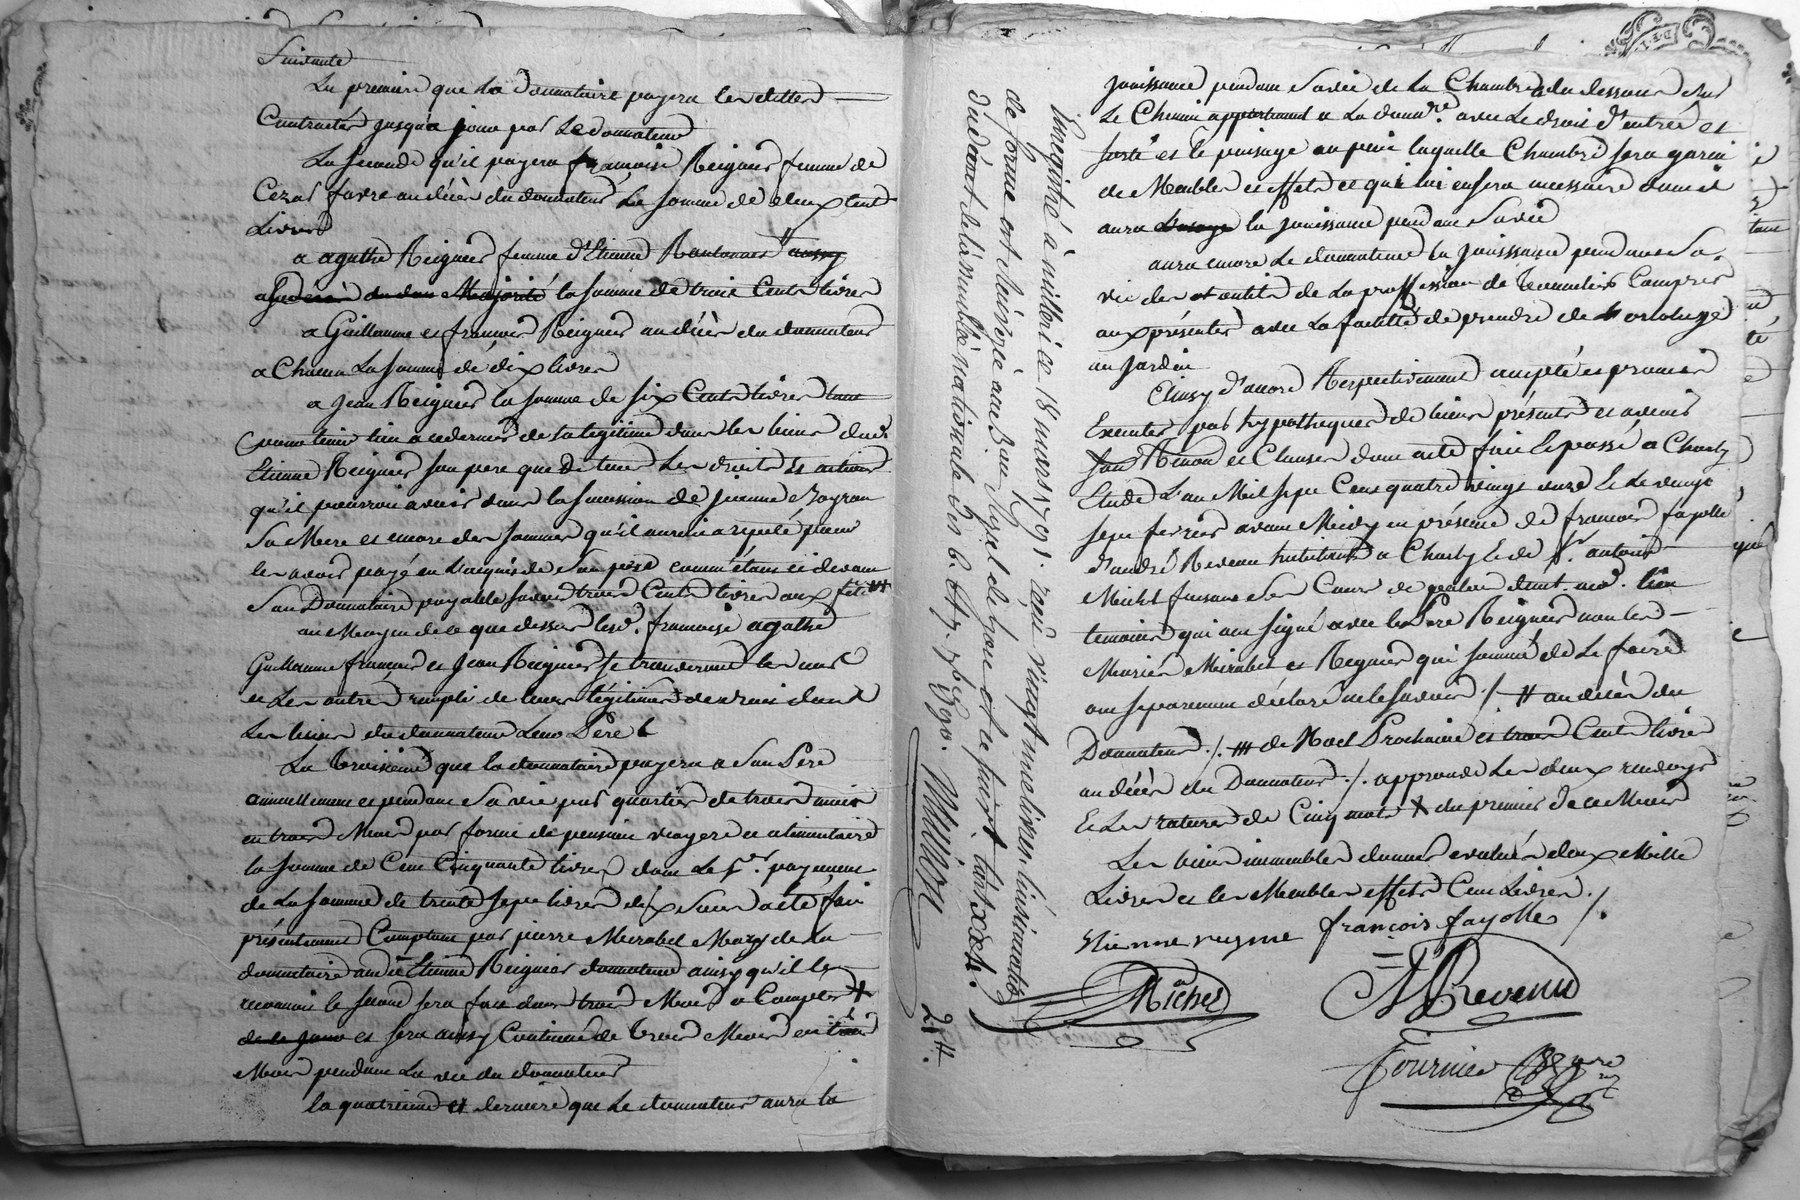 Suivante
La premiere que la donnataire payera les dettes
Contractés jusqu'a jour par le donnateur
La seconde qu'il payera françoise Reignier femme de
Cezar favre au décès du donnateur La somme de deux cent
Livres
a agathe Reignier femme d'Etienne
la somme de trois Cents livres
a Guillaume et françois Reignier au décès du donnateur
a Chacun La somme de dix livres
a Jean Reignier la somme de six Cents livres tant
pour tenir lieu a ce dernier de sa legitime dans les biens dud.
Etienne Reignier son pere que de tous les droits et actions
qu'il pourroit avoir dans la succession de jeanne
Sa Mere et encore des sommes qu'il auroit a repeté pour
les avoir payé en l'acquis de Son pere comm'étant ci devant
Son Donnataire payable savoir trois Cents livres aux fetes #
au Moyen de ce que dessus lesd. françoise agathe
Guillaume françois et Jean Reignier se trouveront les uns
et Les autres remplis de leurs légitimes de droit dans
Les biens du donnateur Leur Pere
La troisieme que la donnataire payera a Son Pere
annuellement et pendant Sa vie par quartier de trois mois
en trois Mois par forme de pension viagere et alimentaire
la somme de Cent Cinquante livres dont Le 1er. payement
de La somme de trente sept livres dix Sous a été fait
présentement Comptant par pierre Mirabel Mary de La
donnataire aud. Etienne Reignier donnateur ainsy qu'il le
reconnoit le second sera fait dans trois Mois a Compter X
de ce jour et sera ainsy Continué de trois Mois en trois
Mois pendant La vie du donnateur
la quatrieme et derniere que Le donnateur aura la
Enregistré à millery ce 18 mars 1791. reçu vingt une livres. l'insinuation
de forme est renvoyée au Bau. Royal de Lyon et ce suivt. l'art. xxx
du décret de l'assemblée nationale des 6. et 7. 7bre. 1790. Million
21 #.
jouissance pendant Sa vie de La Chambre du dessous sur
Le Chemin appartenant a La donnre. avec Le droit d'entrée et
sortie et le puisage au puits laquelle Chambre sera garnie
de Meubles et effets et qui lui sera necessaire dont il
aura la jouissance pendant Sa vie
aura encore Le donnateur la jouissance pendant Sa
vie des outils de La proffession de Tonnelier Compris
aux présentes avec La faculté de prendre de hortolage
au Jardin
Ainsy d'accord Respectivement accepté et promis
Executer par hypotheques de biens présents et avenir
Renon et Clauses dont acte fait et passé a Charly
Etude L'an Mil sept Cent quatre vingt onze et Le vingt
sept fevrier avant Midy en présence de françois fayolle
d'andré Revenu habitants a Charly Et de Sr. antoine
Michel faisant Son Cours de pratique
temoins qui ont signé avec led. Pere Reignier non les
Mariés Mirabel et Reignier qui sommé de Le faire
ont séparement déclaré ne le savoir ./. # au décès du
Donnateur ./. ## de Noel Prochaine et trois Cents livres
au décès du Donnateur ./. approuvé Les deux renvoys
Et Les ratures de Cinq mots X du premier de ce Mois
Les biens immeubles donnés evalués deux Mille
Livres et les Meubles effets Cent Livres ./.
Etienne reynie françois fayolle ./.
Michel A Revenu
Fournier